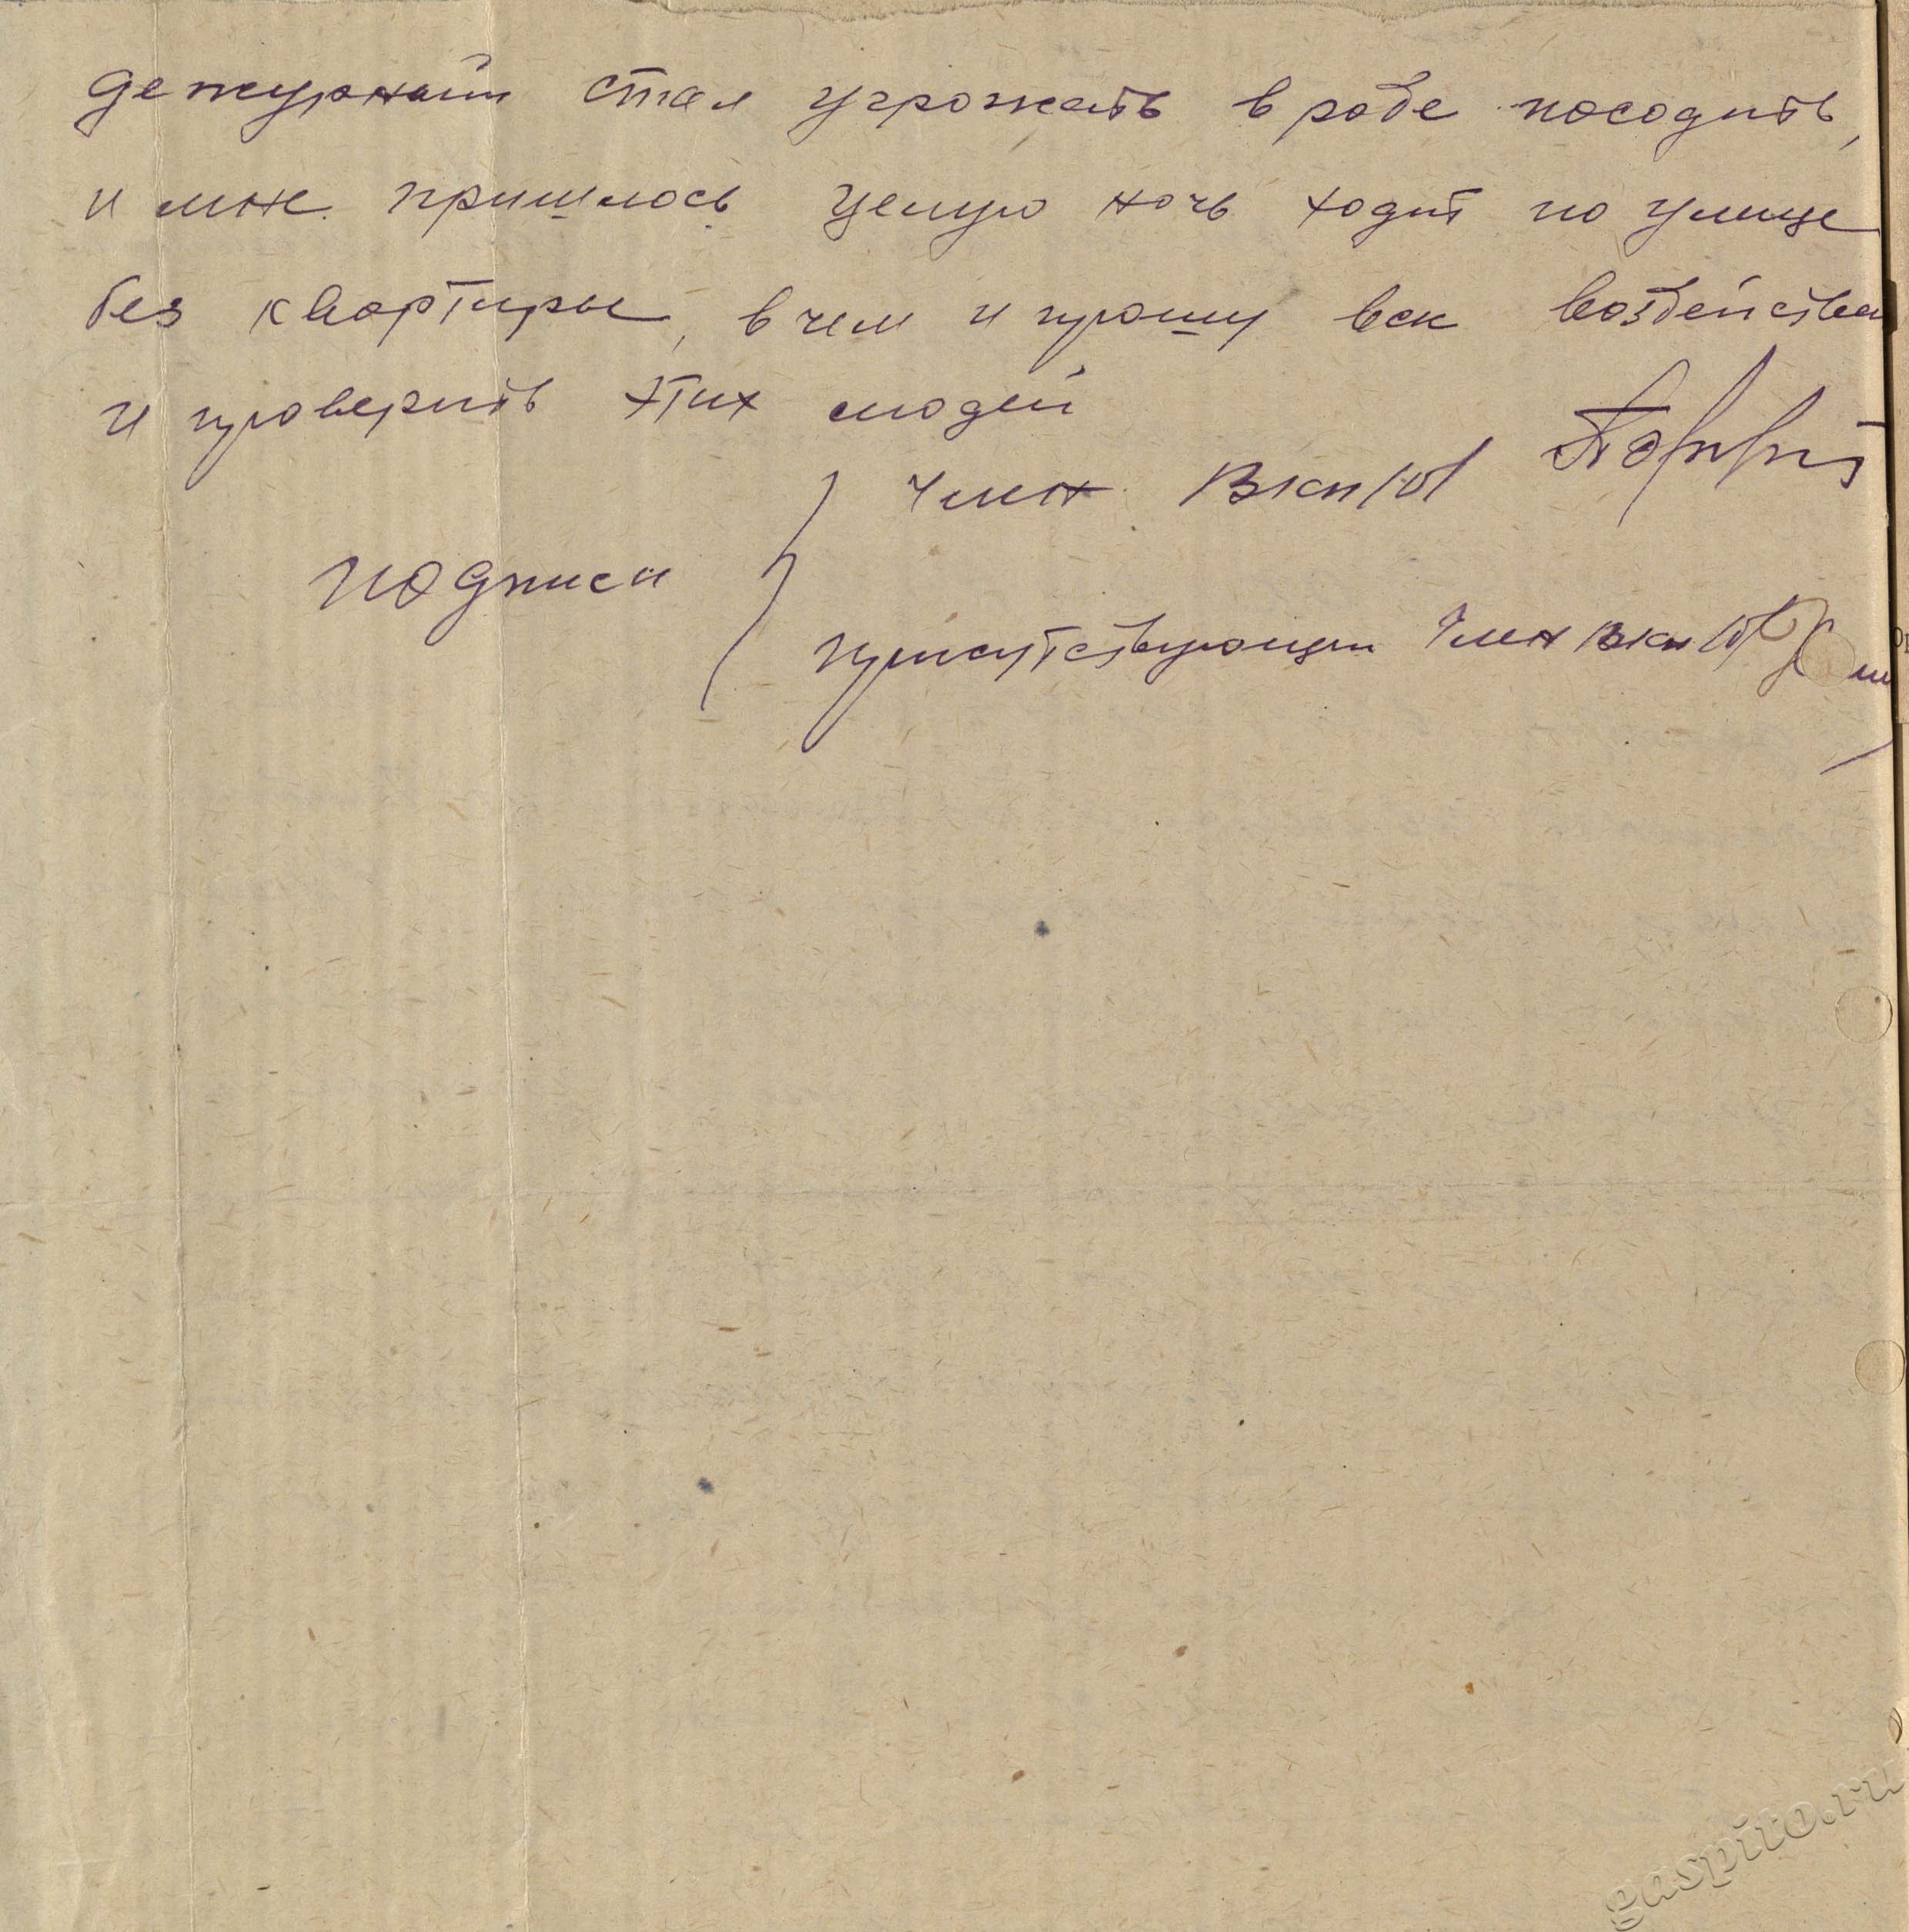 дежурный стал угрожать вроде посодить,
и мне пришлось целую ночь ходит по улице
без квартиры, в чем и прошу вск воздейства
и проверить этих людей
член ВКП/б/
подписи
присутствующи член ВКП/б/
gaspito.ru